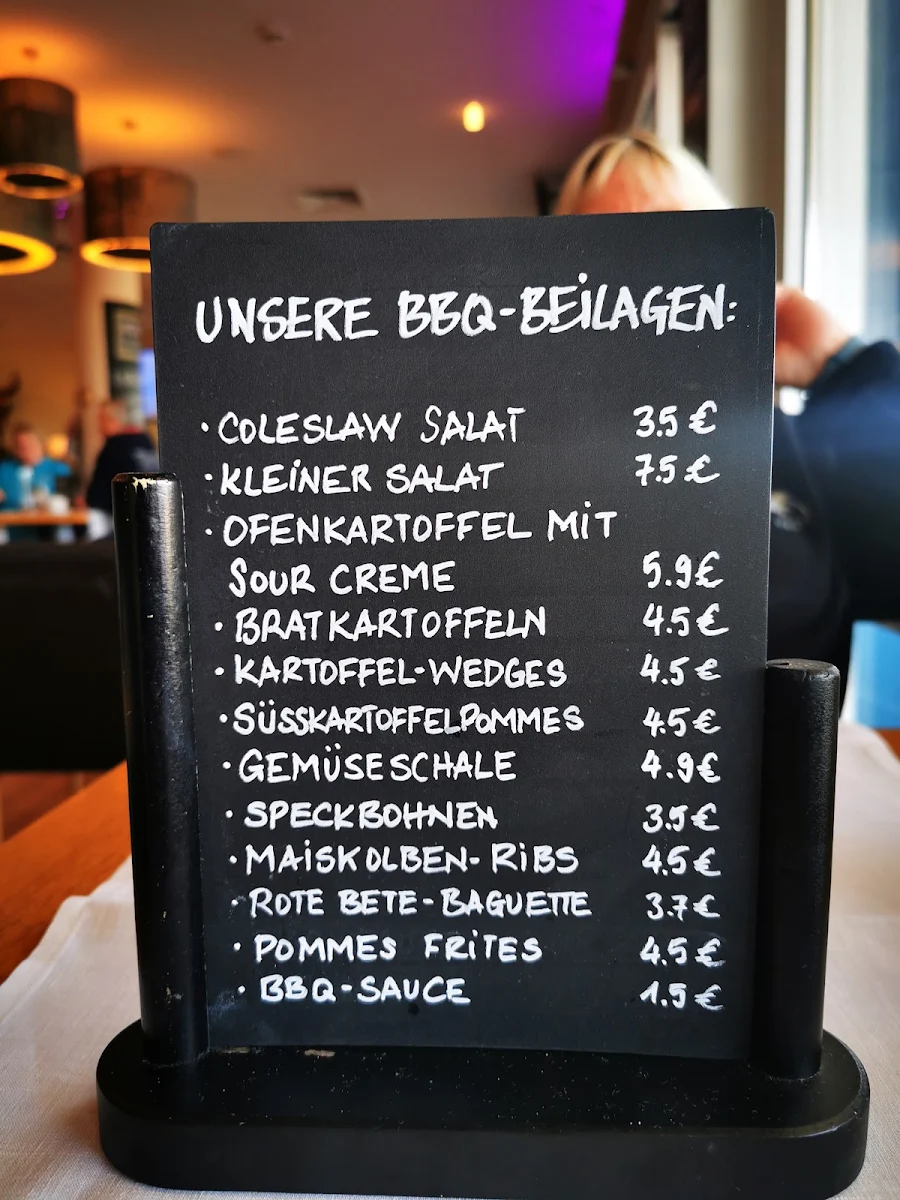 UNSERE BBQ-BEILAGEN:
· COLESLAW SALAT 3.5 €
· KLEINER SALAT 7.5 €
· OFENKARTOFFEL MIT
SOUR CREME 5.9 €
· BRATKARTOFFELN 4.5 €
· KARTOFFEL-WEDGES 4.5 €
· SÜSSKARTOFFELPOMMES 4.5 €
· GEMÜSESCHALE 4.9 €
· SPECKBOHNEN 3.5 €
· MAISKOLBEN-RIBS 4.5 €
· ROTE BETE-BAGUETTE 3.7 €
· POMMES FRITES 4.5 €
· BBQ-SAUCE 1.5 €